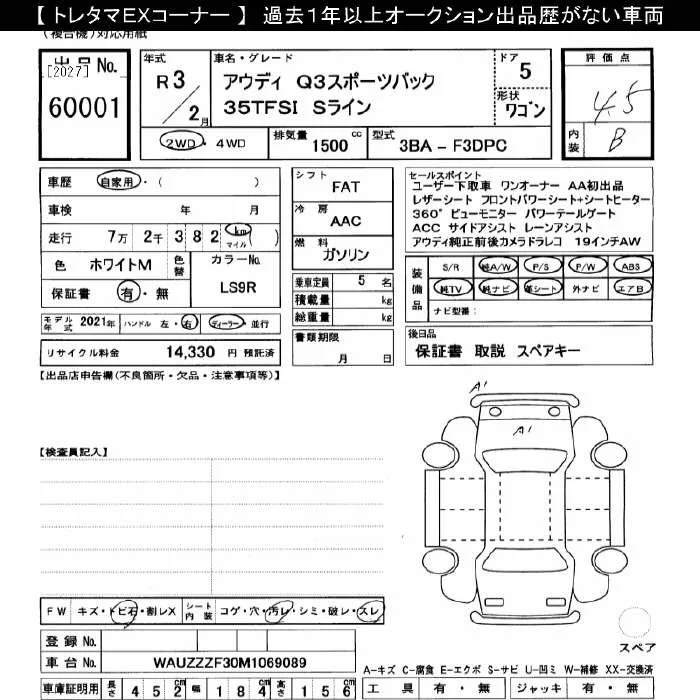 【 トレタマEXコーナー 】 過去1年以上オークション出品歴がない車両
(複合機)対応用紙
出品 No.
[2027]
60001
年式
R 3 / 2 月
車名・グレード
アウディ Q3スポーツバック
35TFSI Sライン
ドア 5
形状
ワゴン
2WD ・ 4WD
排気量 1500 cc
型式 3BA - F3DPC
評価点
4.5
内装 B
車歴 自家用・( )
車検 年 月
走行 7万 2千 3 8 2 km マイル ( )
色 ホワイトM 色替
カラーNo. LS9R
保証書 有・無
モデル年式 2021年 ハンドル 左・右 ディーラー・並行
リサイクル料金 14,330 円 預託済
シフト FAT
冷房 AAC
燃料 ガソリン
乗車定員 5 名
積載量 kg
総重量 kg
書類期限
月 日
セールスポイント
ユーザー下取車 ワンオーナー AA初出品
レザーシート フロントパワーシート+シートヒーター
360° ビューモニター パワーテールゲート
ACC サイドアシスト レーンアシスト
アウディ純正前後カメラドラレコ 19インチAW
装備品
S/R 純A/W P/S P/W ABS
純TV 純ナビ 革シート 外ナビ エアB
ナビ型番:
後日品
保証書 取説 スペアキー
【出品店申告欄(不良箇所・欠品・注意事項等)】
【検査員記入】
A1
A1
FW キズ・トビ石・割レX シート内装 コゲ・穴・汚レ・シミ・破レ・スレ
登録 No.
車台 No. WAUZZZF30M1069089
車庫証明用 長さ 4 5 2 cm 幅 1 8 4 cm 高さ 1 5 6 cm
スペア
A-キズ C-腐食 E-エクボ S-サビ U-凹ミ W-補修 XX-交換済
工具 有・無 ジャッキ 有・無